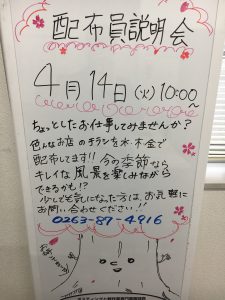 配布員説明会
4月14日(火)10:00~
ちょっとしたお仕事してみませんか?
色んなお店のチラシを水木金で
配布してます!!今の季節なら
キレイな風景を楽しみながら
できるかも!?
少しでも気になった方は、お気軽に
お問い合わせください!!
0263-87-4916